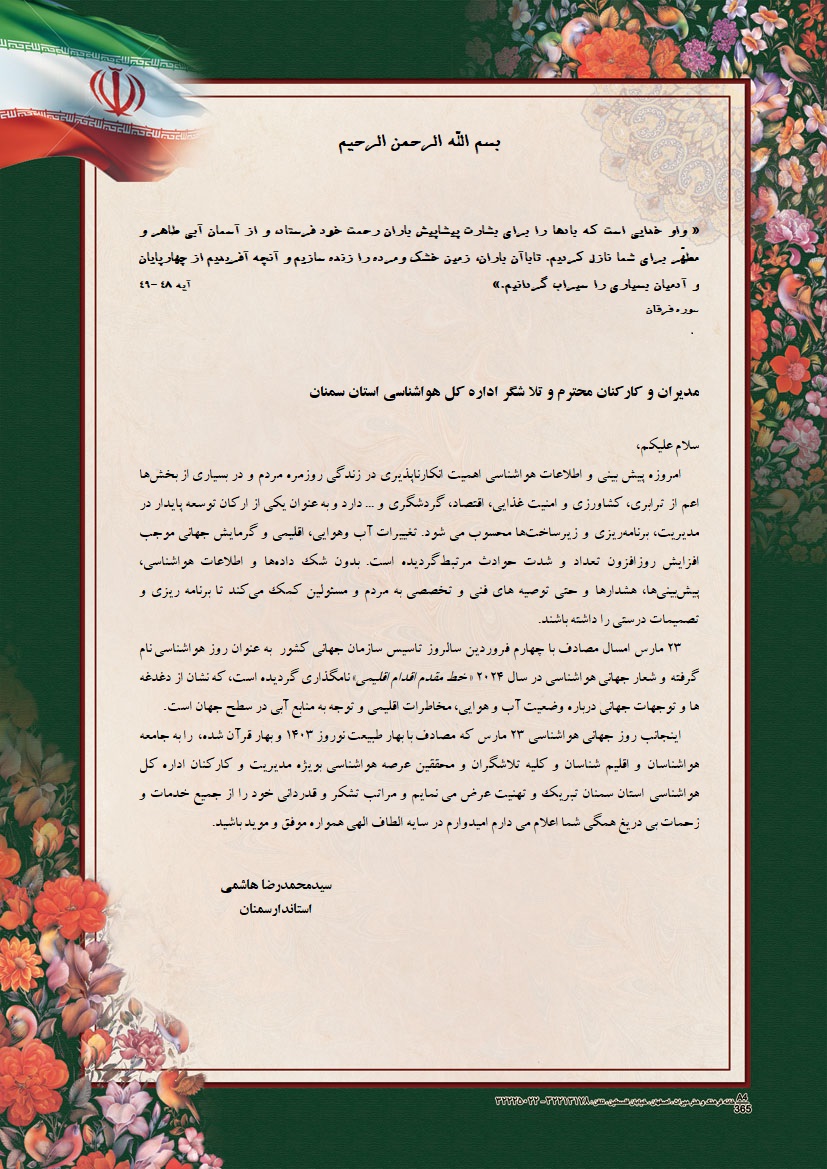 بسم الله الرحمن الرحیم
« واو خدایی است که بادها را برای بشارت پیشاپیش باران رحمت خود فرستاد، و از آسمان آبی طاهر و
مطهّر برای شما نازل کردیم. تاباآن باران، زمین خشک ومرده را زنده سازیم و آنچه آفریدیم از چهارپایان
و آدمیان بسیاری را سیراب گردانیم.» آیه ۴۸ –۴۹
سوره فرقان
.
مدیران و کارکنان محترم و تلا شگر اداره کل هواشناسی استان سمنان
سلام علیکم،
امروزه پیش بینی و اطلاعات هواشناسی اهمیت انکارناپذیری در زندگی روزمره مردم و در بسیاری از بخش‌ها
اعم از ترابری، کشاورزی و امنیت غذایی، اقتصاد، گردشگری و ... دارد و به عنوان یکی از ارکان توسعه پایدار در
مدیریت، برنامه‌ریزی و زیرساخت‌ها محسوب می شود. تغییرات آب وهوایی، اقلیمی و گرمایش جهانی موجب
افزایش روزافزون تعداد و شدت حوادث مرتبط گردیده است. بدون شک داده‌ها و اطلاعات هواشناسی،
پیش‌بینی‌ها، هشدارها و حتی توصیه های فنی و تخصصی به مردم و مسئولین کمک می‌کند تا برنامه ریزی و
تصمیمات درستی را داشته باشند.
۲۳ مارس امسال مصادف با چهارم فروردین سالروز تاسیس سازمان جهانی کشور به عنوان روز هواشناسی نام
گرفته و شعار جهانی هواشناسی در سال ۲۰۲۴ «خط مقدم اقدام اقلیمی» نامگذاری گردیده است، که نشان از دغدغه
ها و توجهات جهانی درباره وضعیت آب و هوایی، مخاطرات اقلیمی و توجه به منابع آبی در سطح جهان است.
اینجانب روز جهانی هواشناسی ۲۳ مارس که مصادف با بهار طبیعت نوروز ۱۴۰۳ و بهار قرآن شده، را به جامعه
هواشناسان و اقلیم شناسان و کلیه تلاشگران و محققین عرصه هواشناسی بویژه مدیریت و کارکنان اداره کل
هواشناسی استان سمنان تبریک و تهنیت عرض می نمایم و مراتب تشکر و قدردانی خود را از جمیع خدمات و
زحمات بی دریغ همگی شما اعلام می دارم امیدوارم در سایه الطاف الهی همواره موفق و موید باشید.
سیدمحمدرضا هاشمی
استاندارسمنان
خانه فرهنگ و هنر میراث ، اصفهان ، خیابان فلسطین ، تلفن : ۳۲۲۱۳۱۷۸–۳۲۲۲۵۰۲۲
365